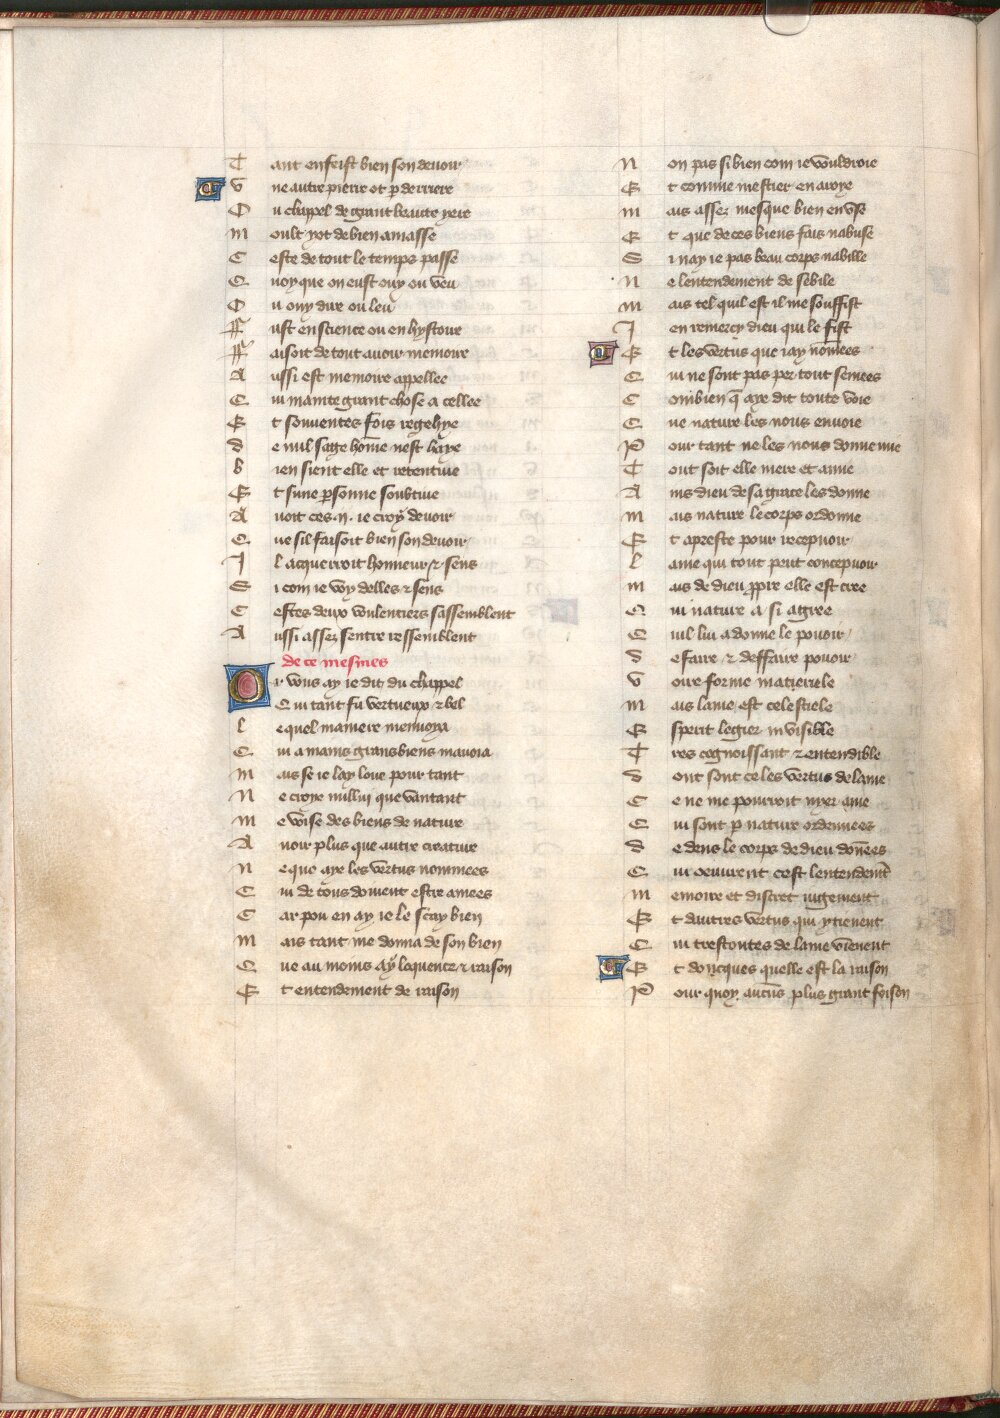 Tant en feist bien son devoir
Une autre pierre ot p derriere
Du chappel de grant beaute yere
Moult y ot de bien amasse
Ceste de tout le temps passe
Quoy que on eust ouy ou veu
Ou ouy dire ou leu
Fust en science ou en hystoire
Faisoit de tout avoir memoire
Aussi est memoire appellee
Qui mainte grant chose a cellee
Et souventes fois regehye
De nul sage home nest haye
Bien sient elle et retentive
Et sune psonne soubtive
Avoit ces .ii. ie croy devoir
Que sil faisoit bien son devoir
Il acquerroit honneur & sens
Si com ie voy delles & sens
Cestes deux voulentiers sassemblent
Aussi assez sentre ressemblent
de ce mesmes
Or vous ay ie dit du chappel
Qui tant fu vertueux & bel
Lequel maniere menvoya
Qui a mains grans biens mavoia
Mais se ie lay loue pour tant
Ne croye nullui que vantant
Me voise des biens de nature
Avoir plus que autre creature
Ne que aye les vertus nommees
Qui de tous doivent estre amees
Car pou en ay ie le scay bien
Mais tant me donna de son bien
Que au moins ay loquence & raison
Et entendement de raison
Non pas si bien com ie vouldroie
Et comme mestier en avoye
Mais assez mesque bien en use
Et que de ces biens fais nabuse
Si nay ie pas beau corps nabille
Ne lentendement de sebile
Mais tel quil est il me souffist
Jen remercy dieu qui le fist
Et les vertus que iay nomees
Qui ne sont pas per tout semees
Combien q aye dit toute voie
Que nature les nous envoie
Pour tant ne les nous donne mie
Tout soit elle mere et amie
Ains dieu de sa grace les donne
Mais nature le corps ordonne
Et apreste pour recepvoir
Lame qui tout peut concepvoir
Mais de dieu ppre elle est cree
Qui nature a si agree
Quil lui a donne le povoir
De faire & deffaire povoir
Voire forme materiele
Mais lame est celestiele
Esperit legier invisible
Tres cognoissant & entendible
Dont sont celes vertus de lame
Ce ne me pourroit nyer ame
Qui sont p nature ordennees
Dedens le corps de dieu donees
Qui oeuvrent cest lentendemt
Memoire et discret iugement
Et dautres vertus qui y tienent
Qui trestoutes de lame vienent
Et doncques quelle est la raison
Pour quoy aucus plus grant foison